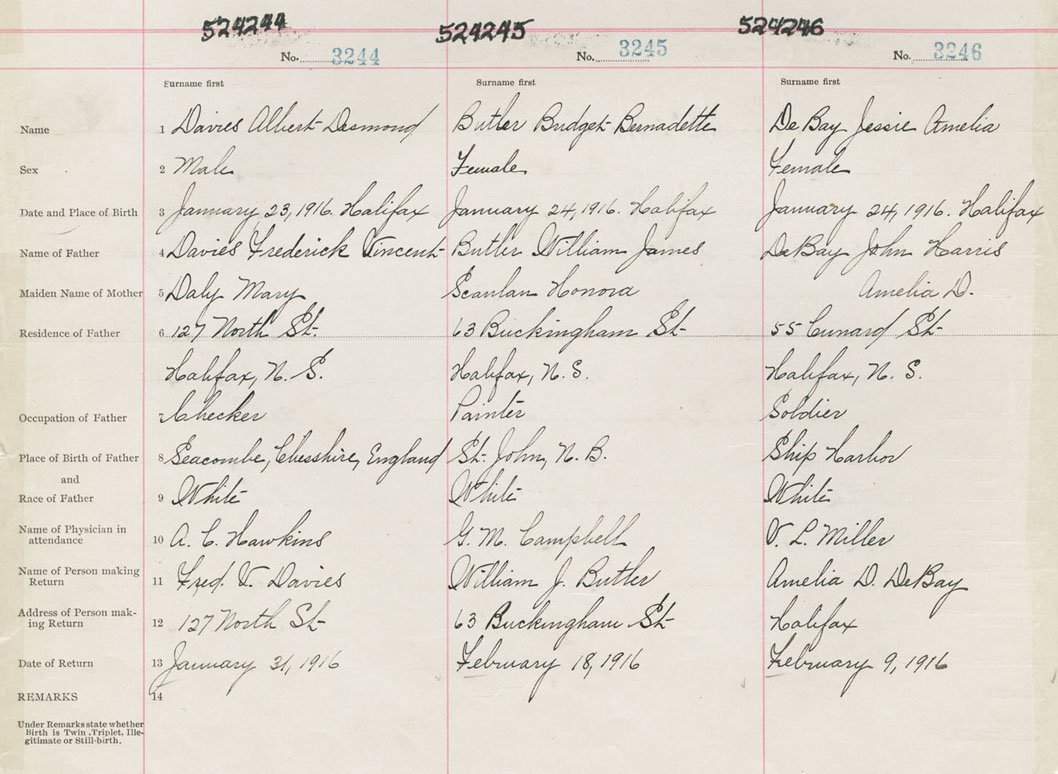 524244 524245 524246
No. 3244 No. 3245 No. 3246
Surname first Surname first Surname first
Name 1 Davies Albert Desmond Butler Bridget Bernadette DeBay Jessie Amelia
Sex 2 Male Female Female
Date and Place of Birth 3 January 23, 1916. Halifax January 24, 1916. Halifax January 24, 1916. Halifax
Name of Father 4 Davies Frederick Vincent Butler William James DeBay John Harris
Maiden Name of Mother 5 Daly Mary Scanlan Honora Amelia D.
Residence of Father 6 127 North St. 63 Buckingham St. 55 Cunard St.
Halifax, N. S. Halifax, N. S. Halifax, N. S.
Occupation of Father 7 Checker Painter Soldier
Place of Birth of Father 8 Seacombe, Chesshire, England St. John, N. B. Ship Harbor
and
Race of Father 9 White White White
Name of Physician in
attendance 10 A. C. Hawkins G. M. Campbell V. L. Miller
Name of Person making
Return 11 Fred. V. Davies William J. Butler Amelia D. DeBay
Address of Person mak-
ing Return 12 127 North St. 63 Buckingham St. Halifax
Date of Return 13 January 31, 1916 February 18, 1916 February 9, 1916
REMARKS 14
Under Remarks state whether
Birth is Twin, Triplet, Ille-
gitimate or Still-birth.